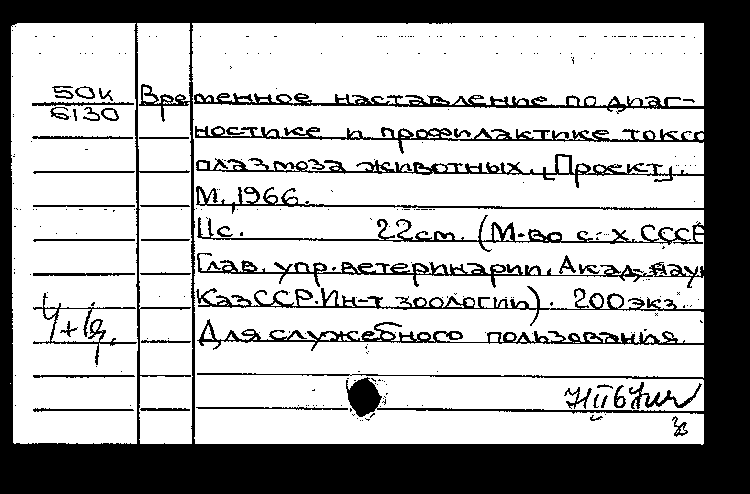 50к Временное наставление по диаг-
6130 1 ностике и профилактике токсо
плазмоза животных. [Проект].
М., 1966.
11с. 22см. (М-во с.-х. СССР
Глав. упр. ветеринарии. Акад. наук
КазССР. Ин-т зоологии). 200 экз.
Для служебного пользования.